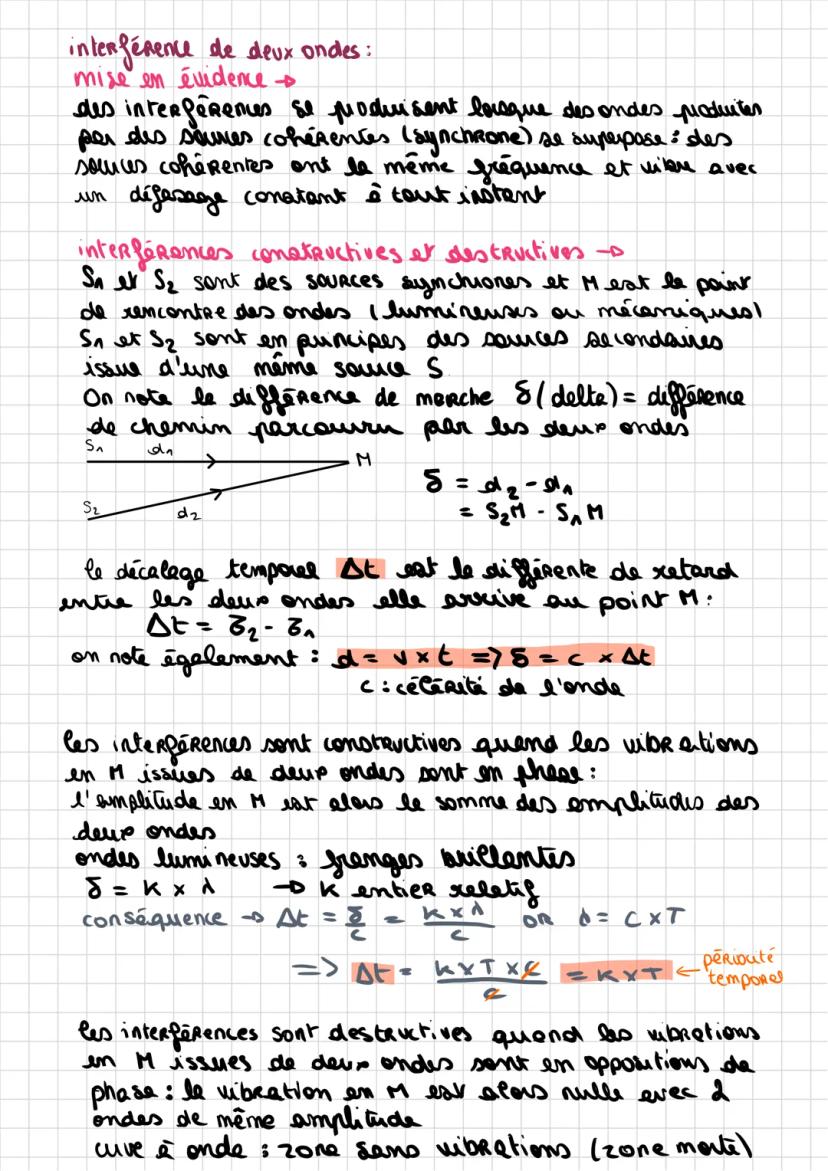 interférence de deux ondes :
mise en évidence →
des interférences se produisent lorsque des ondes produites
par des sources cohérentes (synchrone) se superpose : des
sources cohérentes ont la même fréquence et vibre avec
un défasage constant à tout instant
interférences constructives et destructives →
S₁ et S₂ sont des sources synchrones et M est le point
de rencontre des ondes (lumineuses ou mécaniques)
S₁ et S₂ sont en principes des sources secondaires
issue d'une même source S
On note la différence de marche δ (delta) = différence
de chemin parcouru par les deux ondes
S₁ d₁ M
S₂ d₂
δ = d₂ - d₁
= S₂M - S₁M
le décalage temporel Δt est la différente de retard
entre les deux ondes elle arrive au point M :
Δt = τ₂ - τ₁
on note également : d = v × t => δ = c × Δt
c : célérité de l'onde
les interférences sont constructives quand les vibrations
en M issues de deux ondes sont en phase :
l'amplitude en M est alors la somme des amplitudes des
deux ondes
ondes lumineuses : franges brillantes
δ = K × λ → K entier relatif
conséquence → Δt = δ/c = K × λ/c OR λ = C × T
=> Δt = K × T × c/c = K × T ← périocité
temporel
les interférences sont destructives quand les vibrations
en M issues de deux ondes sont en oppositions de
phase : la vibration en M est alors nulle avec 2
ondes de même amplitude
cuve à onde : zone sans vibrations (zone morte)